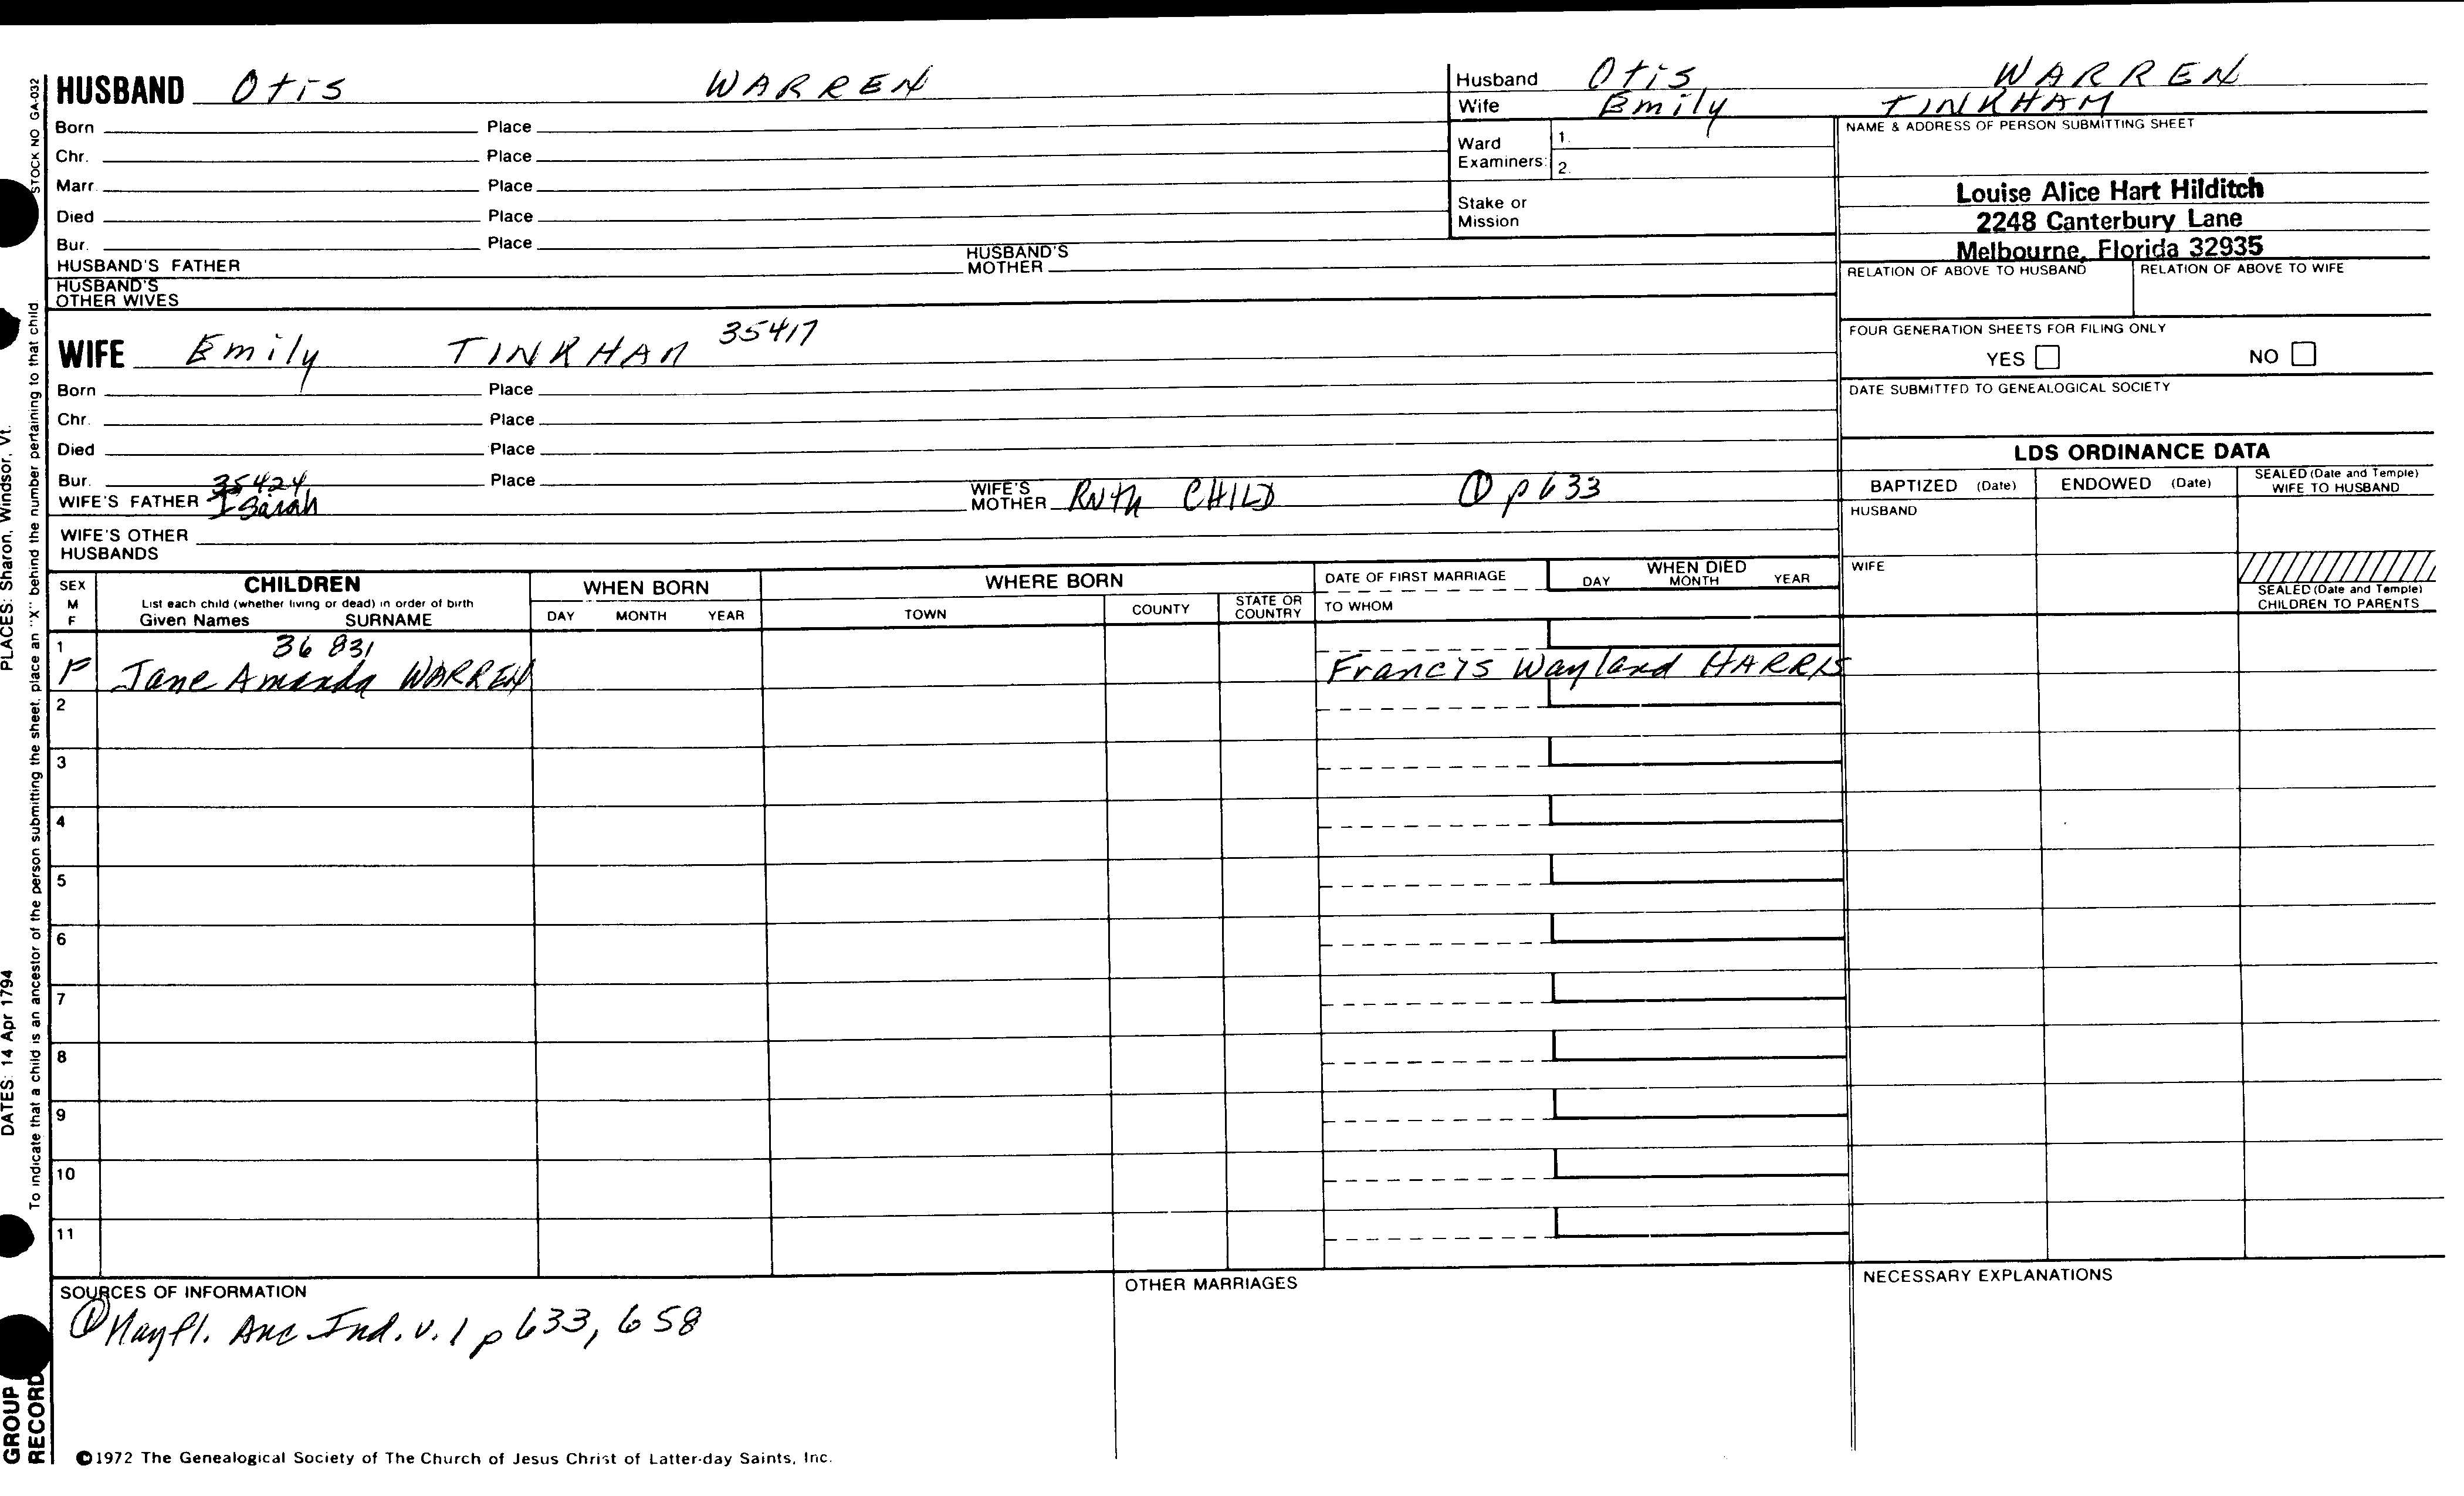 HUSBAND Otis WARREN
Born Place
Chr. Place
Marr. Place
Died Place
Bur. Place
HUSBAND'S FATHER HUSBAND'S MOTHER
HUSBAND'S OTHER WIVES
Husband Otis WARREN
Wife Emily TINKHAM
Ward Examiners: 1.
2.
Stake or Mission
NAME & ADDRESS OF PERSON SUBMITTING SHEET
Louise Alice Hart Hilditch
2248 Canterbury Lane
Melbourne, Florida 32935
RELATION OF ABOVE TO HUSBAND RELATION OF ABOVE TO WIFE
FOUR GENERATION SHEETS FOR FILING ONLY
YES NO
DATE SUBMITTED TO GENEALOGICAL SOCIETY
WIFE Emily TINKHAM 35417
Born Place
Chr. Place
Died Place
Bur. Place
35424
WIFE'S FATHER WIFE'S MOTHER Ruth CHILD ① p 633
WIFE'S OTHER HUSBANDS
LDS ORDINANCE DATA
BAPTIZED (Date) ENDOWED (Date) SEALED (Date and Temple) WIFE TO HUSBAND
HUSBAND
WIFE
SEALED (Date and Temple) CHILDREN TO PARENTS
SEX M F
CHILDREN
List each child (whether living or dead) in order of birth
Given Names SURNAME
WHEN BORN
DAY MONTH YEAR
WHERE BORN
TOWN COUNTY STATE OR COUNTRY
DATE OF FIRST MARRIAGE
TO WHOM
WHEN DIED
DAY MONTH YEAR
36 831
1 F Jane Amanda WARREN Francis Wayland HARRIS
2
3
4
5
6
7
8
9
10
11
SOURCES OF INFORMATION
① Mayfl. Anc Ind. v. 1 p 633, 658
OTHER MARRIAGES
NECESSARY EXPLANATIONS
©1972 The Genealogical Society of The Church of Jesus Christ of Latter-day Saints, Inc.
STOCK NO GA-032
To indicate that a child is an ancestor of the person submitting the sheet, place an "X" behind the number pertaining to that child
DATES: 14 Apr 1794 PLACES: Sharon, Windsor, Vt.
GROUP
RECORD